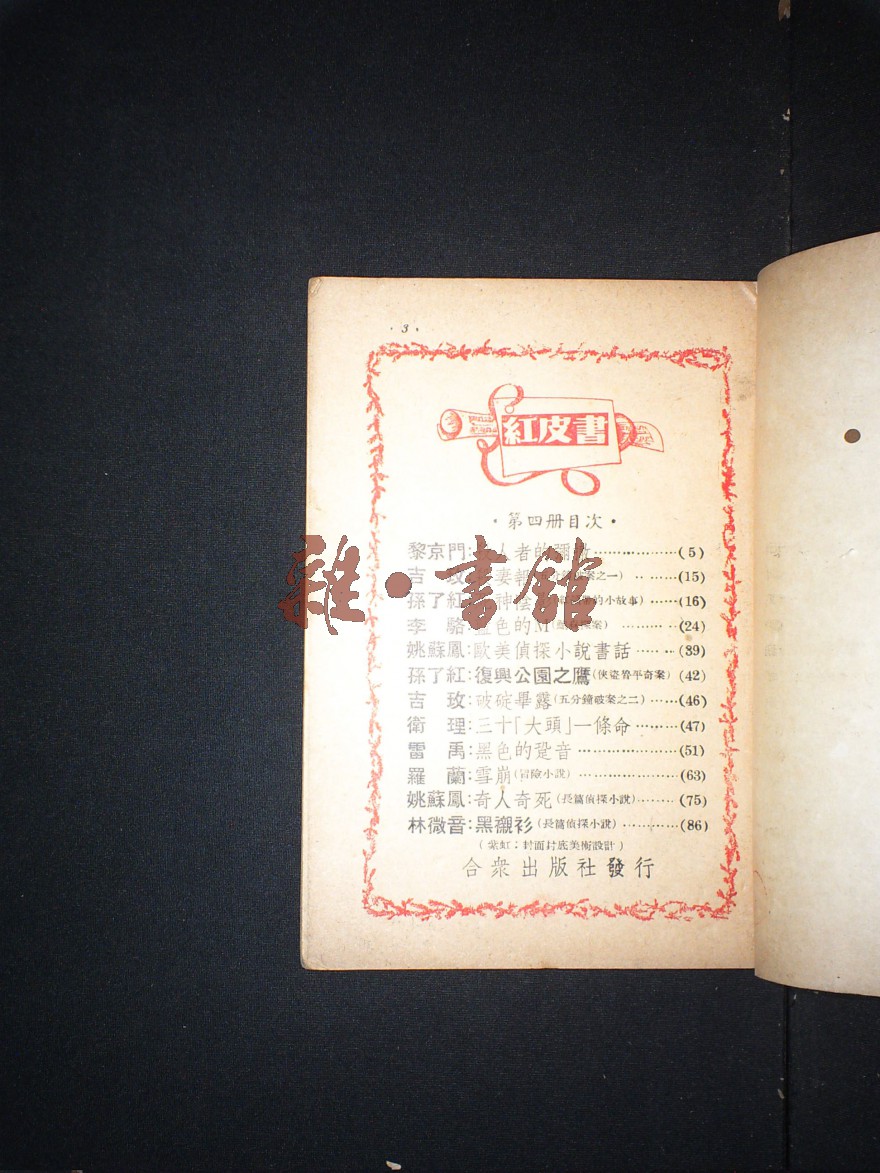 · 3 ·
紅皮書
· 第四册目次 ·
黎京門：人者的……(5)
吉　玫：妻 案之一）……(15)
孫了紅：神 的小故事）……(16)
李　駱：色的M ……(24)
姚蘇鳳：歐美偵探小說書話……(39)
孫了紅：復興公園之鷹（俠盜魯平奇案）(42)
吉　玫：破碇畢露（五分鐘破案之二）……(46)
衛　理：三十「大頭」一條命……(47)
雷　禹：黑色的跫音……(51)
羅　蘭：雪崩（冒險小說）……(63)
姚蘇鳳：奇人奇死（長篇偵探小說）……(75)
林微音：黑襯衫（長篇偵探小說）……(86)
：封面封底美術設計）
合衆出版社發行
雜·書館